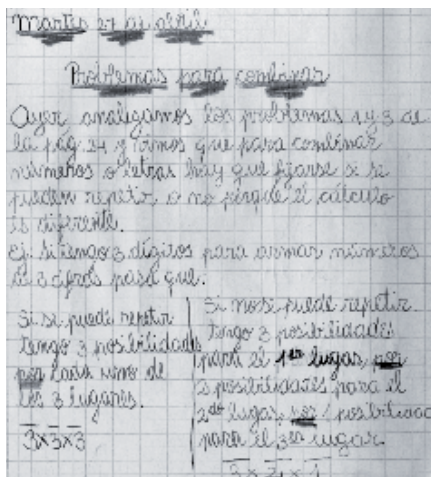 Martes 27 de abril
Problemas para combinar
Ayer analizamos los problemas 1 y 3 de
la pág. 24 y vimos que para combinar
números o letras hay que fijarse si se
pueden repetir o no porque el cálculo
es diferente.
Ej. Si tengo 3 dígitos para armar números
de 3 cifras pasa que:
Si se puede repetir
tengo 3 posibilidades
por cada uno de
los 3 lugares.
3x3x3
Si no se puede repetir
tengo 3 posibilidades
para el 1er lugar, por
2 posibilidades para el
2do lugar, por 1 posibilidad
para el 3er lugar
3x2x1